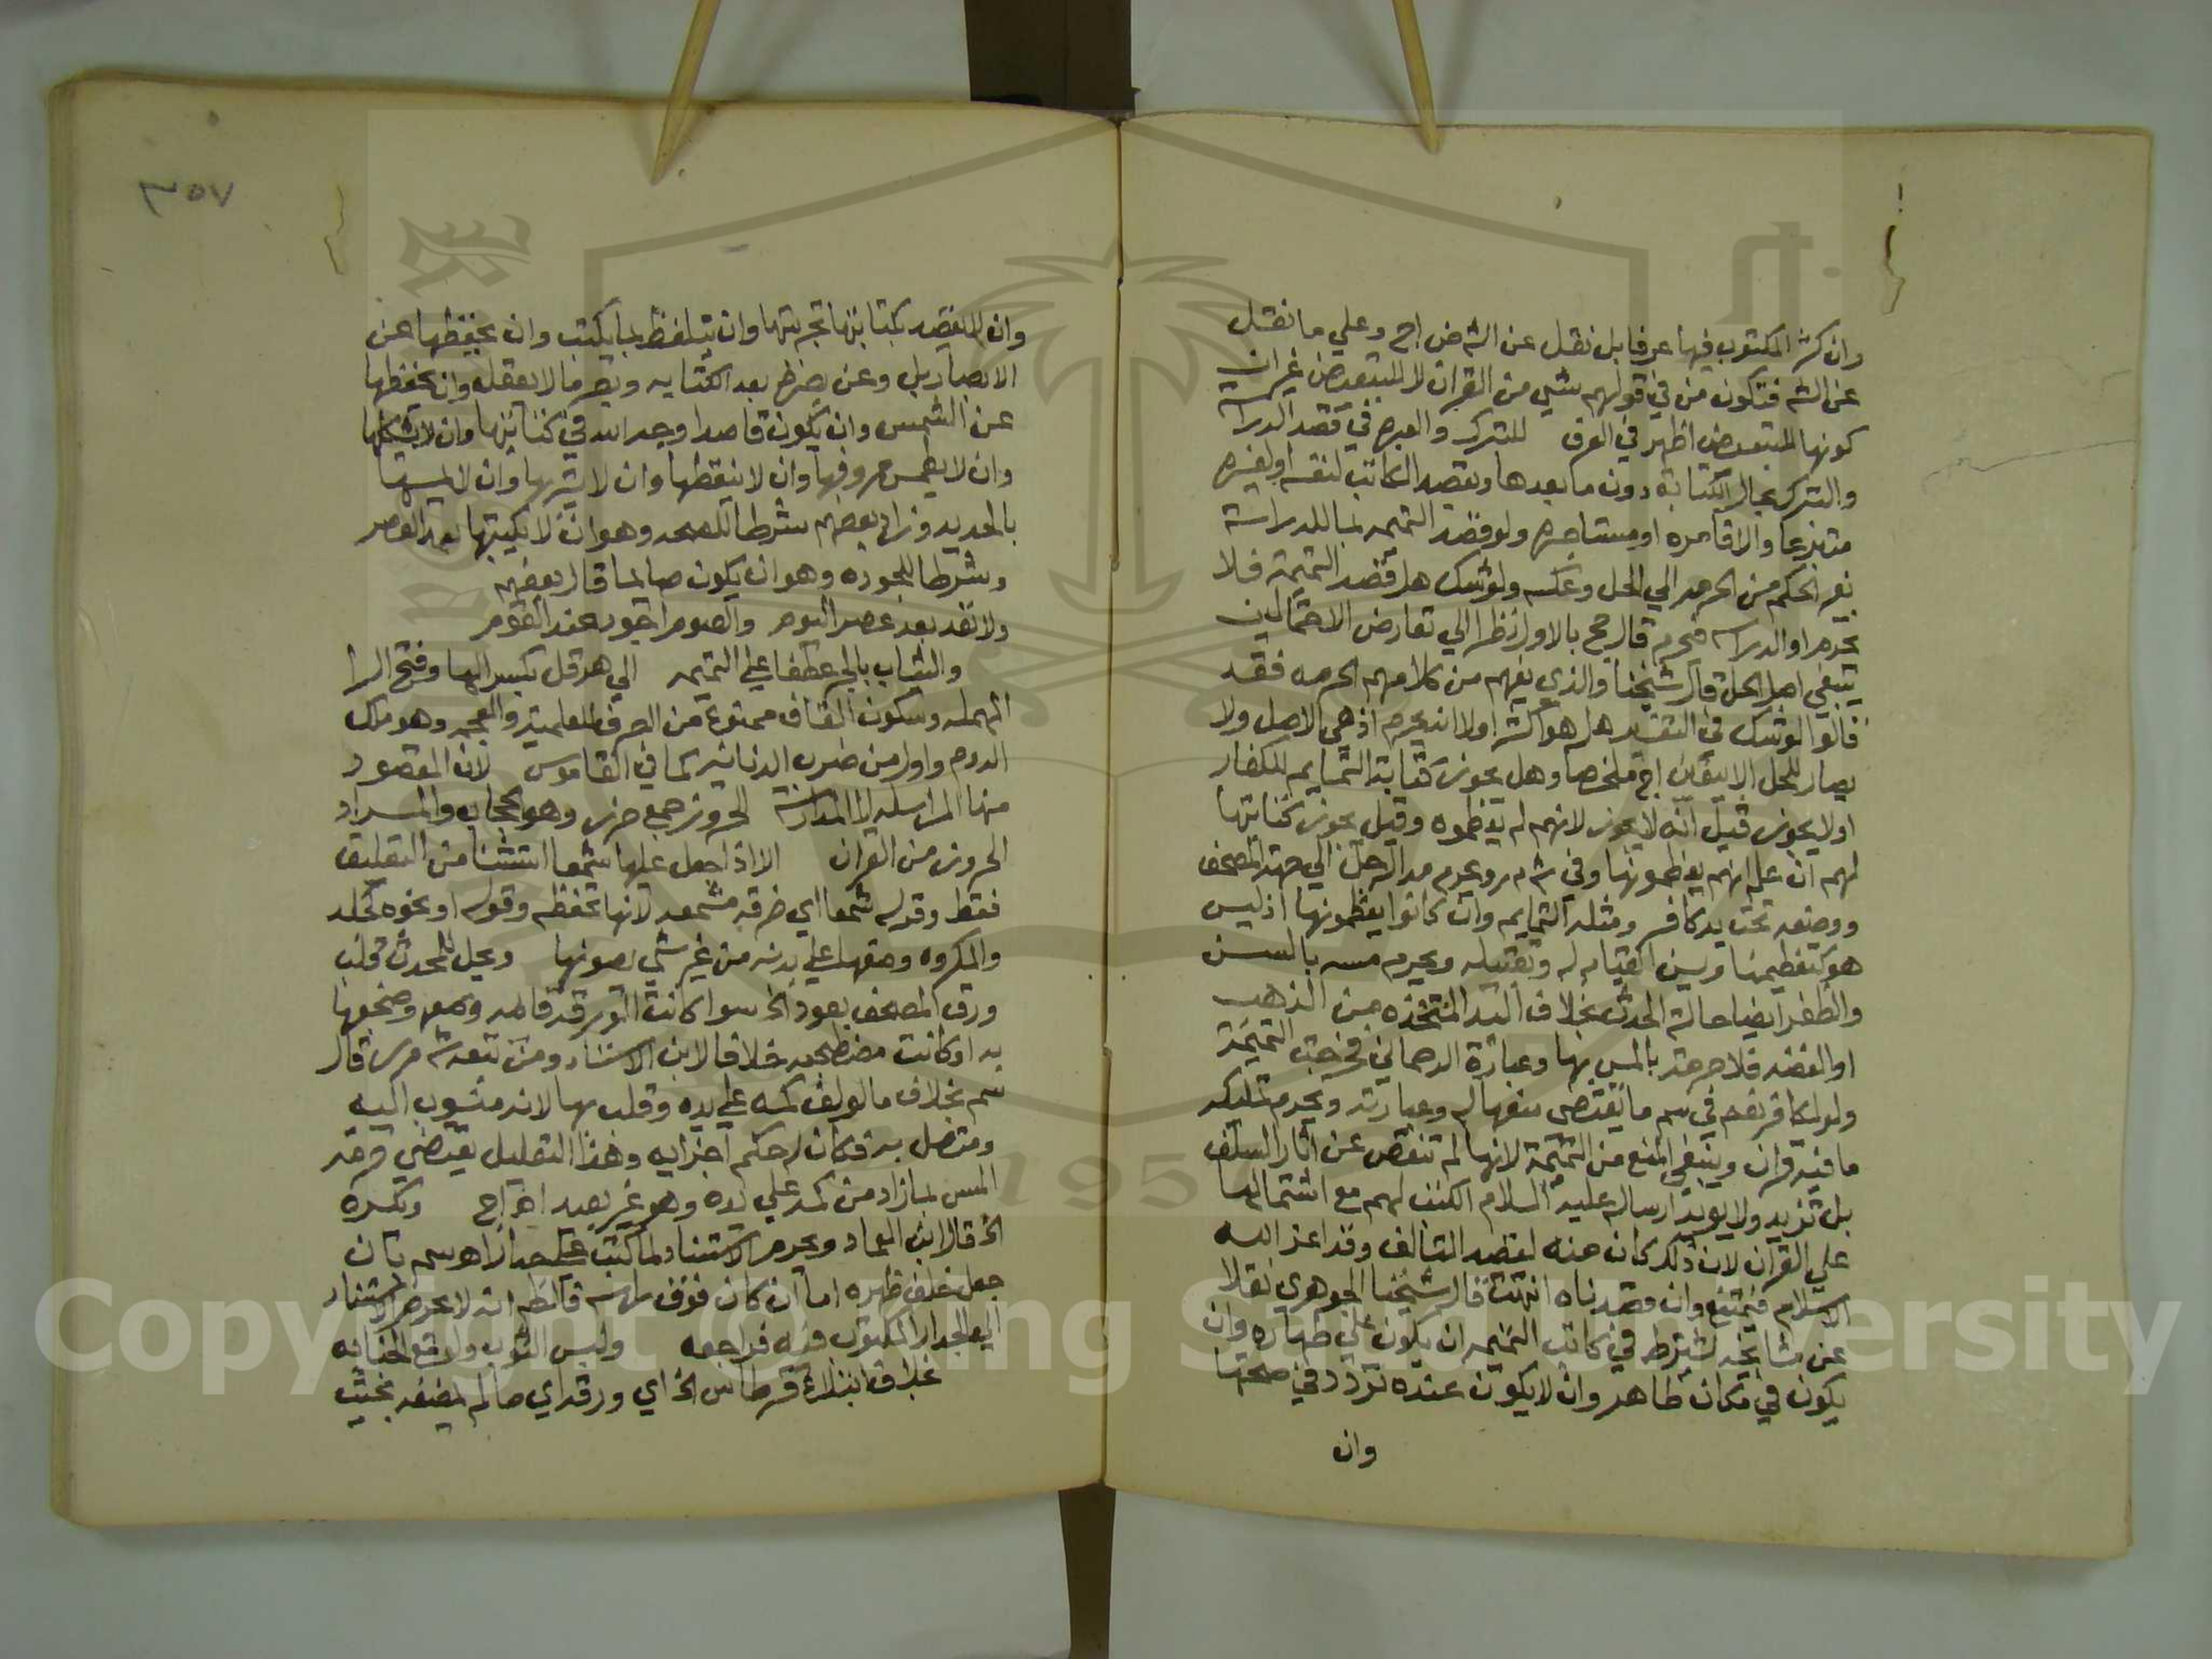 وان كثر المكتوب فيها عرفا بل نقل عن الشم ض اج وعلي ما نقل
عن الشم فتكون من في قولهم شي من القران لا للتبعيض غير ان
كونها للتبعيض اظهر في العرف للتبرك والعبرة في قصد الدراسة
والتبرك بحال الكتابة دون ما بعدها وبقصد الكاتب لنفسه او لغيره
متبرعا والا فآمره او مستاجره ولو قصد التميمه بما للدراسة
تغير الحكم من الحرمه الي الحل وعكسه ولو شك هل قصد التميمة فلا
يحرم او الدراسه فيحرم قال حج بالاول نظرا الي تعارض الاحتمالين
فيبقي اصل الحل قال شيخنا والذي يفهم من كلامهم الحرمه فقد
قالوا لو شك في التفسير هل هو اكثر اولا انه يحرم اذ هي الاصل ولا
يصار للحل الا بيقين اج ملخصا وهل يجوز كتابة التمايم للكفار
اولا يجوز قيل انه لا يجوز لانهم لم يعظموه وقيل يجوز كتابتها
لهم ان علم انهم يعظمونها وفي شم مر ويحرم مد الرجل الي جهة المصحف
ووضعه تحت يد كافر ومثله التمايم وان كانوا يعظمونها اذ ليس
هو كتعظيمنا ويسن القيام له وتقبيله ويحرم مسه بالسن
والظفر ايضا حالة الحدث بخلاف اليد المتخذه من الذهب
او الفضه فلا حرمة بالمس بها وعبارة الرحماني
ولو لكافر نعم في سم ما يقتضي منعها له وعبارته ويحرم تمليكه
ما فيه قران وينبغي المنع من التميمة لانها لم تنقص عن اثار السلف
بل تزيد ولا يويد ارساله عليه السلام الكتب لهم مع اشتمالها
علي القران لان ذلك كان منه لقصد التالف وقد اعز الله
الاسلام فيمتنع وان قصدناه انتهت قال شيخنا الجوهري نقلا
عن مشايخه يشترط في كاتب التميمه ان يكون علي طهاره وان
يكون في مكان طاهر وان لا يكون عنده تردد في صحتها
وان
٣٥٧
وان لا يقصد بكتابتها تجربتها وان يتلفظ بما يكتب وان يحفظها عن
الابصار بل وعن بصره بعد الكتابه وبصر ما لا يعقل وان يحفظها
عن الشمس وان يكون قاصدا وجه الله في كتابتها وان لا يشكلها
وان لا يطمس حروفها وان لا ينقطها وان لا يتربها وان لا يمسها
بالحديد وزاد بعضهم شرطا للصحه وهو ان لا يكتبها بعد العصر
وشرطا للجوده وهو ان يكون صايما قال بعضهم
ولا تقد بعد عصر اليوم والصوم اجود عند القوم
والثياب بالجر عطفا علي التميمه الي هرقل بكسر الها وفتح الرا
المهمله وسكون القاف ممنوع من الصرف للعلميه والعجمه وهو ملك
الروم واول من ضرب الدنانير كما في القاموس لان المقصود
منها المراسله لا الدراسة الحروز جمع حرز وهو الحجاب والمراد
الحروز من القران الا اذا جعل عليها شمعا استثنا من التعليق
فقط وقوله شمعا اي خرقه مشمعه لانها تحفظه وقوله او نحوه كجلد
والمكروه وضعها علي بدنه من غير شي يصونها ويحل للمحدث قلب
ورق المصحف بعود الخ سوا كانت الورقه قايمه وصفحها
به او كانت منضجعه خلافا لابن الاستاذ ومن تبعه شم مر قال
سم بخلاف ما لو لف كمه علي يده وقلب بها لانه منسوب اليه
ومتصل به فكان له حكم اجزايه وهذا التعليل يقتضي حرمة
المس بما زاد من كمه علي يده وهو غير بعيد اج ويكره
الخ قال ابن العماد ويحرم الاستناد لما كتب علي جدار اه سم بان
جعل خلف ظهره اما ان كان فوق راسه فالظ انه لا يحرم الاستناد
الي الجدار المكتوب فيه فراجعه ولبس الثوب ولو مع الجنابه
بخلاف ابتلاع قرطاس الخ اي ورقه اي ما لم يمضغه بحيث